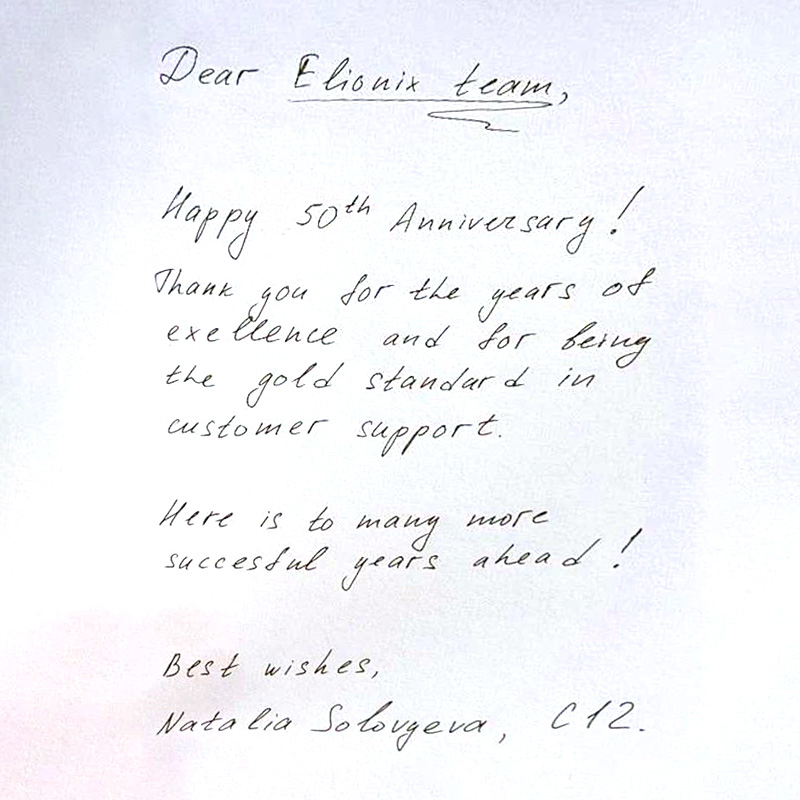 Dear Elionix team,
Happy 50th Anniversary!
Thank you for the years of
exellence and for being
the gold standard in
customer support.
Here is to many more
succesful years ahead!
Best wishes,
Natalia Solovyeva, C12.